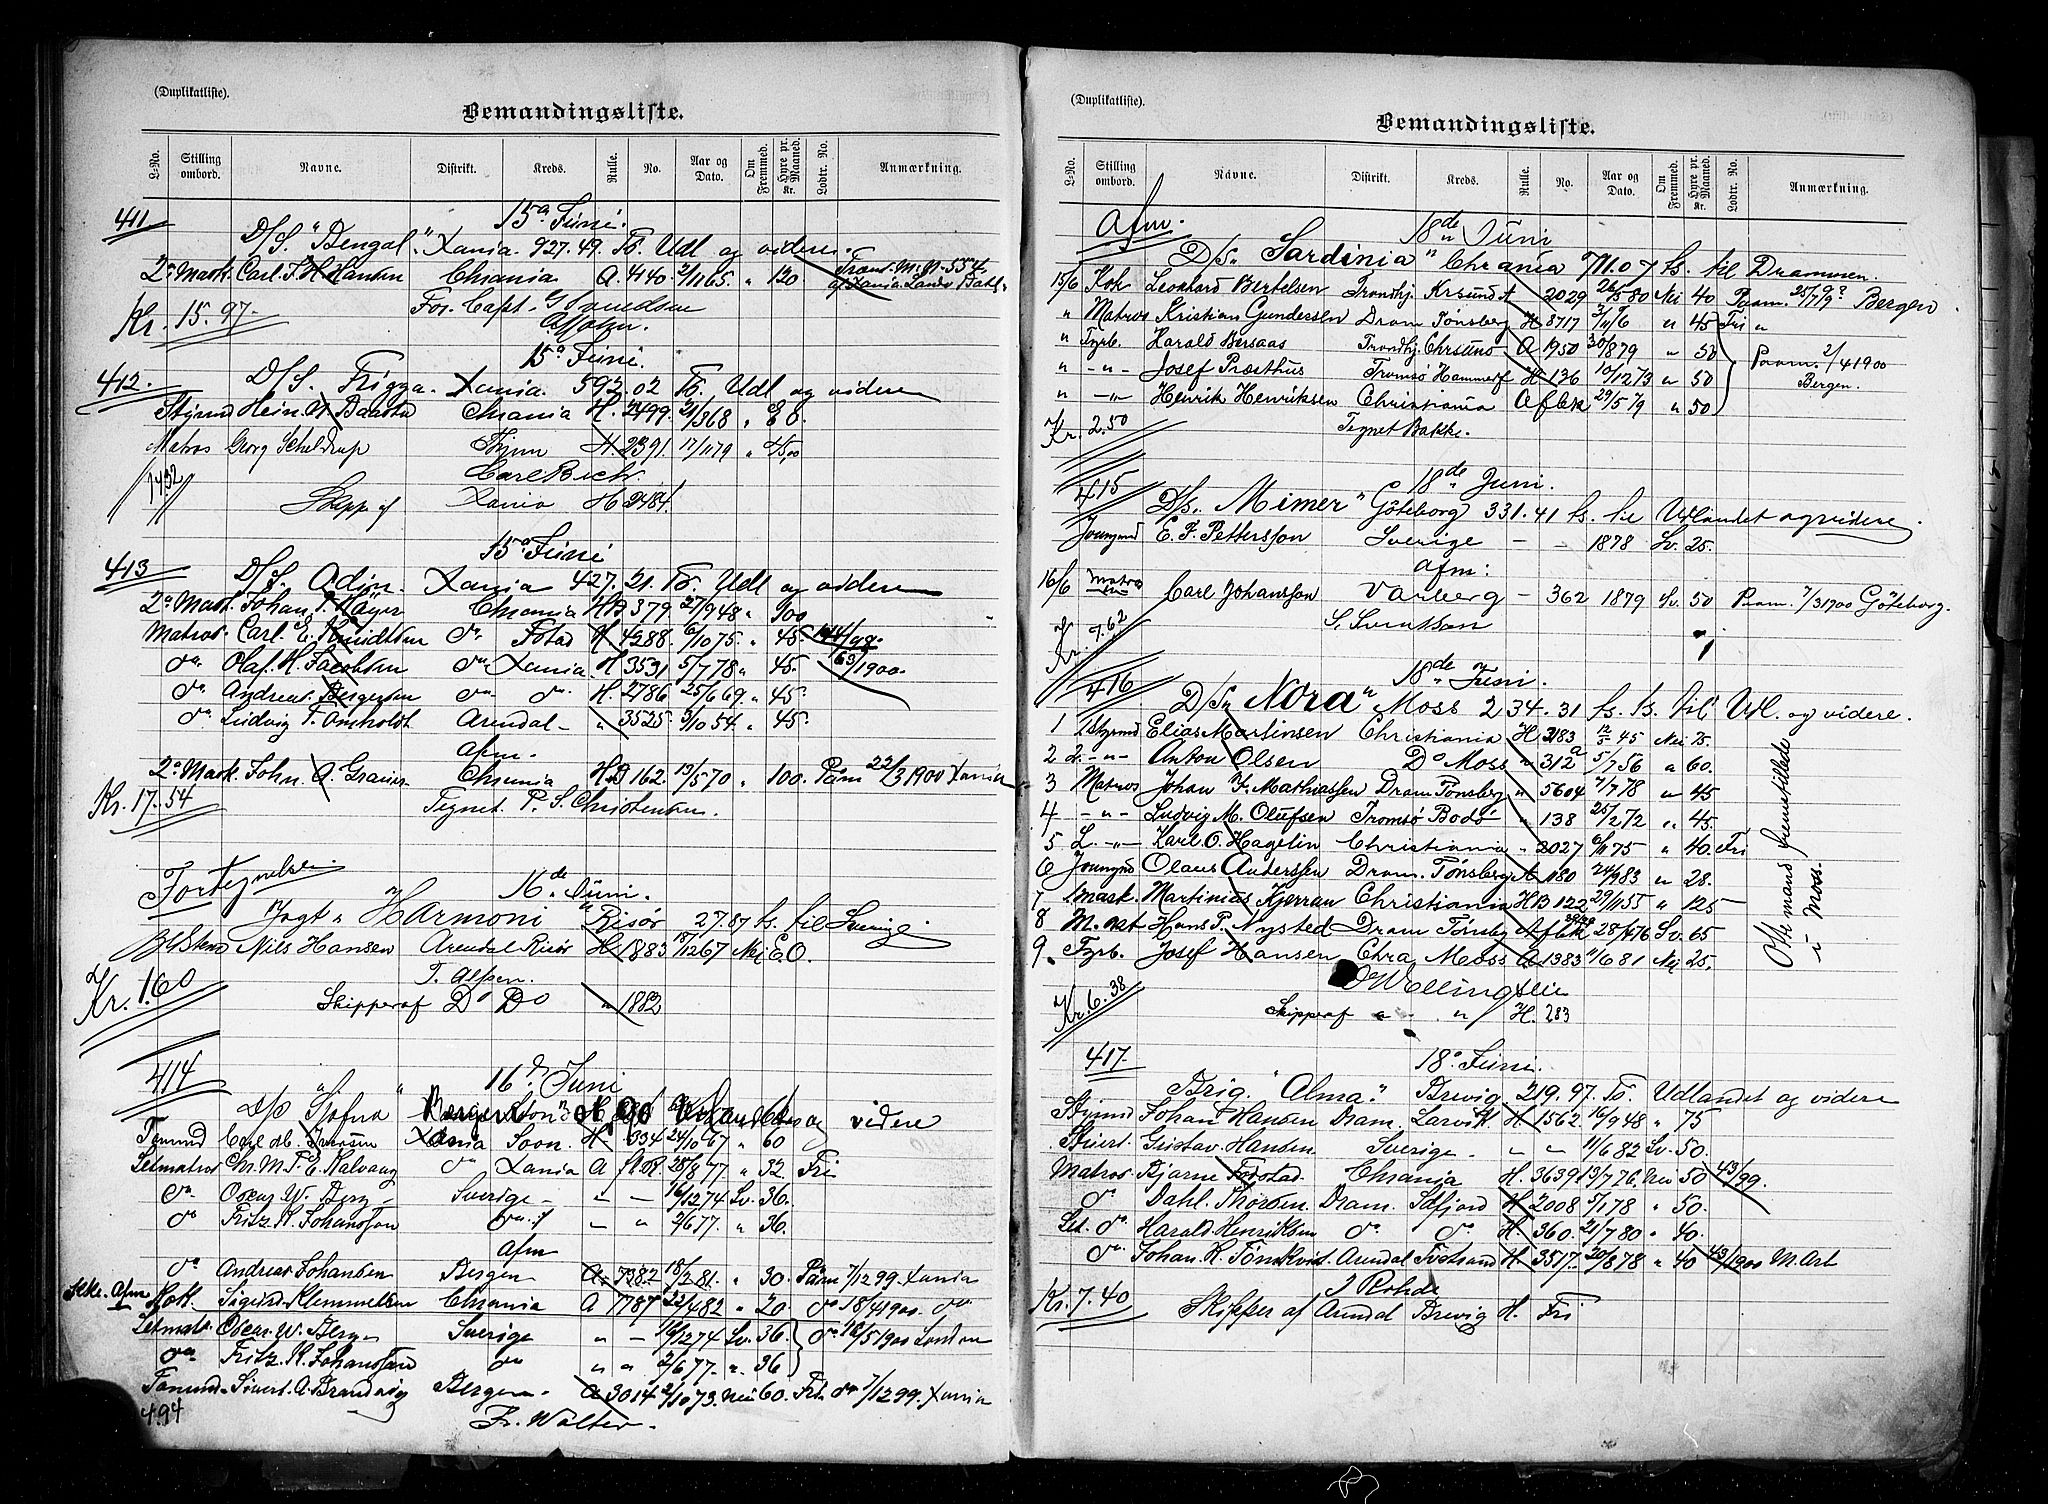 (Duplikatliste).
Bemandingsliste.
L-No. Stilling ombord. Navne. Distrikt. Kreds. Rulle. No. Aar og Dato. Om Fremmed. Hyre pr. Maaned. Kr. Lodtr. No. Anmærkning.
411 15de Juni.
D/S. "Bengal". Xania. 927.49. To. Udl og videre.
2. Mask. Carl. F. H. Hansen Chrania A. 4140 2/11 65. " 120
For Capt. G Knudsen
Kr. 15.97.
15de Juni.
412. D/S. Frigga. Xania. 592.02 To. Udl og videre
Styrmd Hein. A. Baastad Chrania H. 2499. 21/3 68 " E O.
Matros Georg Scheldrup H. 2391. 17/11 79 " 45,00
Carl Bich.
1432 Skipp af Xania H 2484.
15de Juni
413 D/S. Odin. Xania 427.21. To. Udl og videre
2. Mask. Johan. P. Høyer Chrania HB 379 27/9 48 " 100
Matros. Carl. E. Knudtsen do Fstad H. 4288 6/10 75. " 45.
do. Olaf. H. Jacobsen do Xania H. 3531 5/7 78 " 45. 1900.
do. Andreas Bergersen do. do. H. 2786 25/6 69 " 45.
do Ludvig T. Omholdt. Arendal - " 3525 3/10 54 " 45.
Afm.
2. Mask. John. A. Graners Chrania H.B 162. 13/5 70 " 100. Paam 22/3 1900 Xania
Kr. 17.54 Tegnet P. S. Christensen.
Fortegnelse
16de Juni.
Jagt " Harmoni " Risør 27.87 ts. til Sverige
Bestm Niels Hansen Arendal Risør H. 1883 18/12 67 Nei E.O.
Kr. 1.60 T. Alfsen.
Skipper af Do Do " 1882
414 16d. Juni
D/S "Sjofna" Bergen videre
Tømmd Carl Xania Soon. H. 934 24/10 67 " 60
Letmatros Chr. M. T. E. Kalvang do Xania A 28/8 77 " 32. Fri
do. Oscar W. Berg - Sverige - " - 16/12 74 Sv. 36.
do Fritz. K. Johansson do. " " 2/6 77. " 36.
Afm
do Andreas Johansen Bergen A. 7382 18/2 81. " 30. Paam 7/12 99. Xania
Afm Kok. Sigurd Klemmetsen Chrania A 7787 22/4 82 " 20. do 18/4 1900. do.
Letmatr. Oscar. W. Berg - Sverige " - 16/12 74 Sv. 36. do 16/5 1900 London
do Fritz. K. Johansson do " " 2/6 77. " 36
Tømmd. Sivert. A. Brandvig Bergen - A 3014 2/10 73. Nei 60. Fri. do 7/12 99. Xania
4.94 Fr. Wolter.
(Duplikatliste).
Bemandingsliste.
L-No. Stilling ombord. Navne. Distrikt. Kreds. Rulle. No. Aar og Dato. Om Fremmed. Hyre pr. Maaned. Kr. Lodtr. No. Anmærkning.
Afm. 18de Juni
D/S " Sardinia " Chrania 711.07 ts. til Drammen.
15/6 Kok Leonhard Bertelsen Trondhj. Krsund A 2029 26/5 80 Nei 40 Paam. Bergen
" Matros Kristian Gundersen Dram Tønsberg H 8717 " 45 Fri "
" Fyrb. Harald Bersaas Trondhj. Chrsund A 1950 30/8 79 " 50 Paam. 2/4 1900 Bergen.
" - " - Josef Præsthus Tromsø Hammerf H. 136 10/12 73 " 50
" - " Henrik Henriksen Christiania A fl bk 29/5 79 " 50
Kr. 2.50 Tegnet Bakke.
415 18de Juni.
D/S. " Mimer " Göteborg 331.41 ts. til Udlandet og videre.
Joungmd E. F. Pettersson Sverige - - 1878 Sv. 25.
Afm:
16/6 Matros Carl Johansson Varberg - 362 1879 Sv. 50 Paam. 7/3 1900 Göteborg.
Kr. 9.62 S. Svensson
416 18de Juni.
D/S " Nora " Moss 234.31 ts. ts. til Udl. og videre.
1 1. Styrmd Elias Martinsen Christiania H 3183 12/5 45 Nei 75.
2 2. - " - Anton Olsen Do Moss " 312 5/7 56 " 60.
3 Matros Johan Fr. Mathiassen Dram Tønsberg " 5604 7/7 78 " 45
4 - " - Ludvig M. Olufsen Tromsø Bodø " 138 25/2 72 " 45.
5 L. - " - Karl O. Hagelin Christiania " 2027 6/11 75 " 40. Fri
6 Joungmd Olaus Anderssen Dram. Tønsberg A 1180 24/9 83 " 28.
7 1. Mask. Martinius Kjerran Christiania HB 122 29/11 55 " 125
8 M. ast Hans P. Nysted Dram Tønsbg A fl bk 28/4 76 Sv. 65
9. Fyrb. Josef Hansen Chra Moss A 1383 11/6 81 Nei 25.
Otte mand fremstillede i Moss.
Kr. 6.38
Skipper af " " H. 283
417 18de Juni.
Brig. "Alma." Brevig 219.97. To. Udlandet og videre
Styrmd Johan Hansen Dram. Larvik H. 1562 16/9 48 " 75
Stuert. Gustav. Hansen Sverige. " " 11/6 82 Sv. 50.
Matros. Bjarne Forstad. Chrania H. 3639 19/7 76 Nei 50 43/99.
do Dahl. Thorsen Dram. Safjord H 2008 5/1 78 " 50.
Let. do. Harald Henriksen do do. H. 360. 21/7 80 " 40.
do. Johan. K. Tørnkvist Arendal Tvstrand H. 3517. 20/8 78 " 40 43/1900 M. Art
J Rohde
Kr. 7.40 Skipper af Arendal Brevig H. Fri